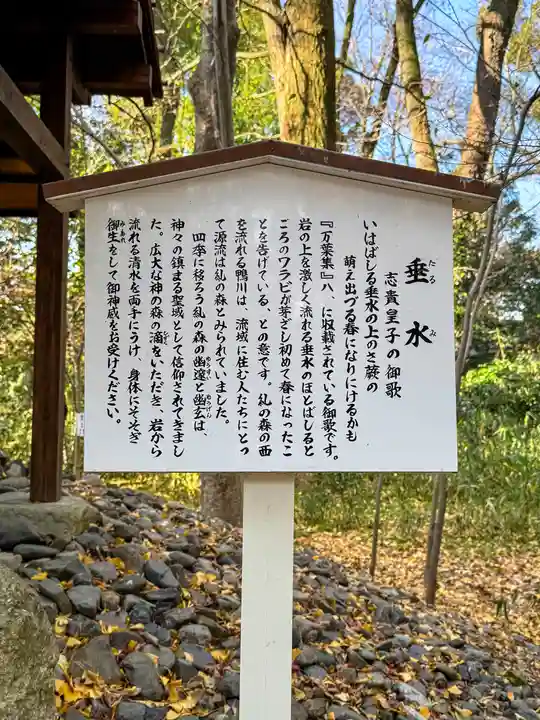 垂水
たる み
志貴皇子の御歌
いはばしる垂水の上のさ蕨の
萌え出づる春になりにけるかも
『万葉集』八、に収載されている御歌です。
岩の上を激しく流れる垂水のほとばしると
ころのワラビが芽ざし初めて春になったこ
とを告げている、との意です。糺の森の西
を流れる鴨川は、流域に住む人たちにとっ
て源流は糺の森とみられていました。
四季に移ろう糺の森の幽邃と幽玄は、
ゆうすい ゆうげん
神々の鎮まる聖域として信仰されてきまし
た。広大な神の森の滴をいただき、岩から
流れる清水を両手にうけ、身体にそそぎ
御生をして御神威をお受けください。
みあれ